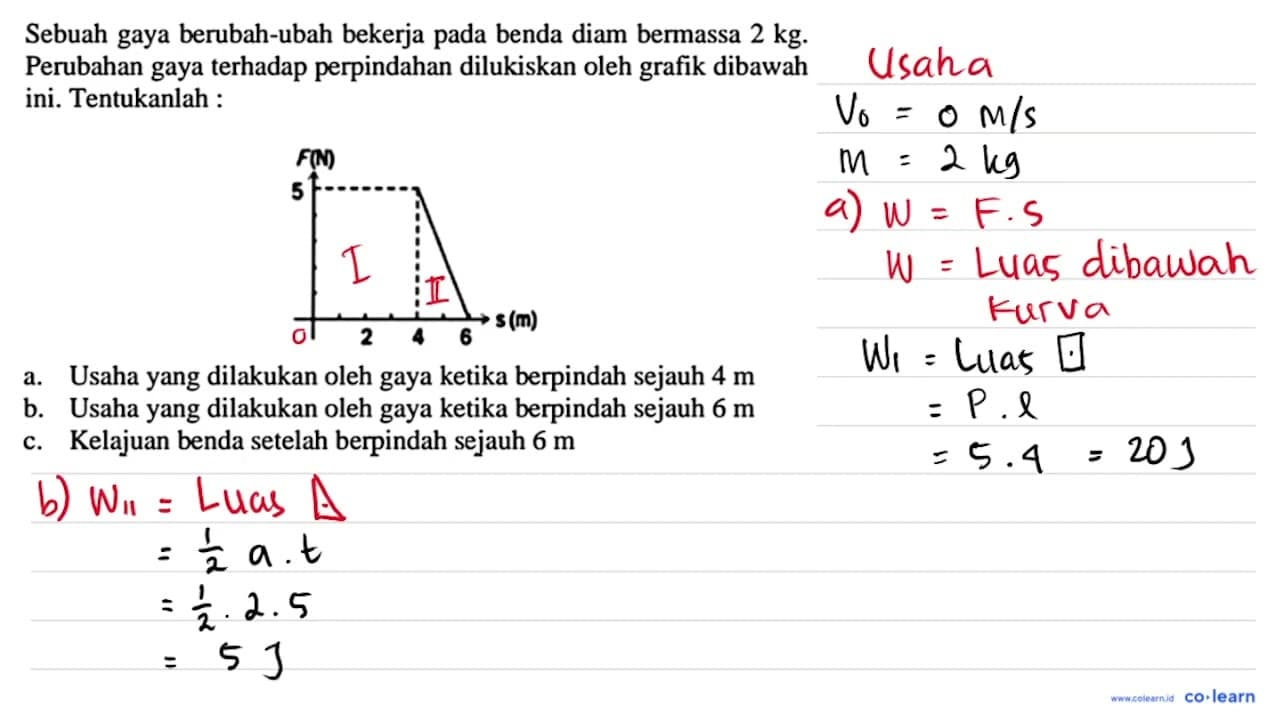 Sebuah gaya berubah-ubah bekerja pada benda diam bermassa 2 kg.
Perubahan gaya terhadap perpindahan dilukiskan oleh grafik dibawah
ini. Tentukanlah :
F(N)
5
I
II
s (m)
0
2
4
6
a. Usaha yang dilakukan oleh gaya ketika berpindah sejauh 4 m
b. Usaha yang dilakukan oleh gaya ketika berpindah sejauh 6 m
c. Kelajuan benda setelah berpindah sejauh 6 m
Usaha
V₀ = 0 M/s
M = 2 kg
a) W = F.S
W = Luas dibawah
Kurva
W₁ = Luas
= P.l
= 5.4 = 20 J
b) W₁₁ = Luas
= 1/2 a.t
= 1/2 . 2.5
= 5 J
www.colearn.id co·learn